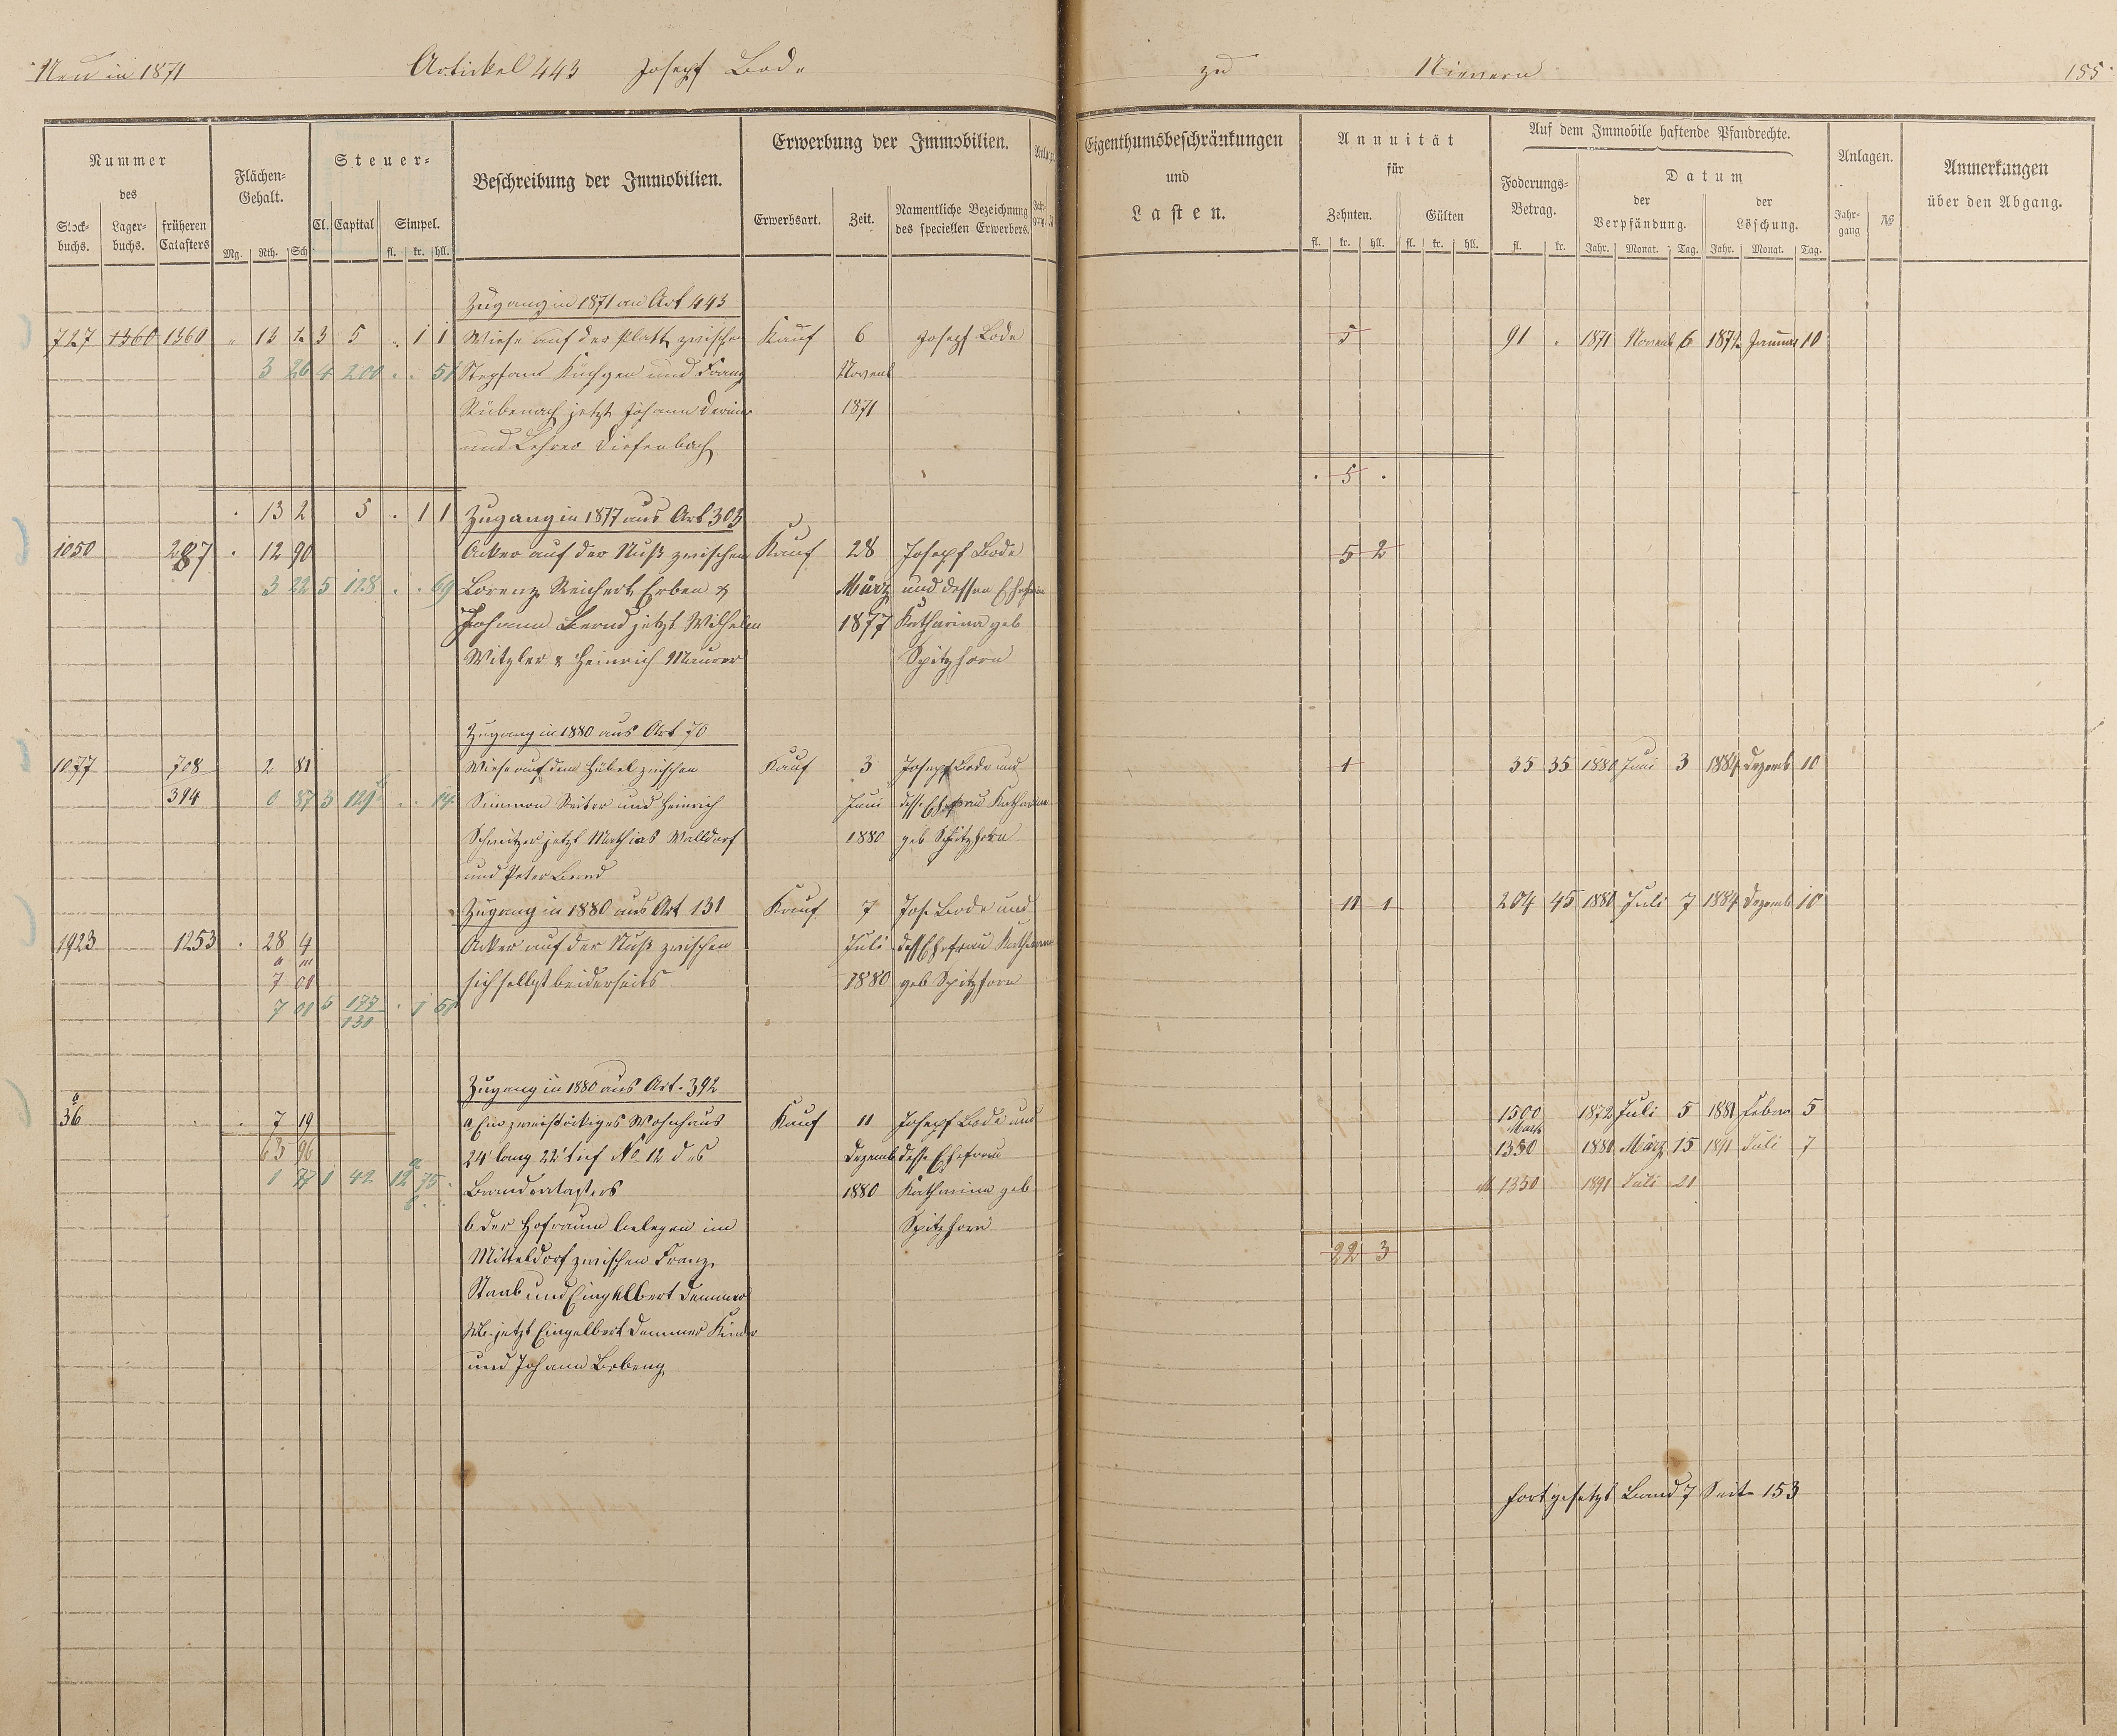 Neu in 1871 Artickel 443 Josepf Bode zu Nievern 155
Nummer des
Stock-buchs. Lager-buchs. früheren Catasters
Flächen-Gehalt.
Mg. Rth. Sch
Steuer-
Cl. Capital Simpel.
fl. kr. hll.
Beschreibung der Immobilien.
Erwerbung der Immobilien.
Erwerbsart. Zeit. Namentliche Bezeichnung des speciellen Erwerbers.
Anlagen
Jahr-gang №
Eigenthumsbeschränkungen
und
Lasten.
Annuität
für
Zehnten. Gülten
fl. kr. hll. fl. kr. hll.
Auf dem Immobile haftende Pfandrechte.
Foderungs-Betrag.
fl. kr.
Datum
der Verpfändung. der Löschung.
Jahr. Monat. Tag. Jahr. Monat. Tag.
Anlagen.
Jahr-gang №
Anmerkungen
über den Abgang.
Zugang in 1871 an Art 443
727 1360 1360 " 13 2 3 5 . 1 1 Wiese auf der Platt zwischen Kauf 6 Josepf Bode 5 91 . 1871 Novemb 6 1872 Januar 10
3 26 4 200 . . 51 Stepfant Küchgen und Franz Novemb
Rübenach jetzt Johann 1871
und Lehrer Diefenbach
. 5 .
. 13 2 5 . 1 1 Zugang in 1877 aus Art 303
1050 287 . 12 90 Acker auf der Nuß zwischen Kauf 28 Josepf Bode 5 2
3 22 5 128 . . 69 Lorenz Reichert Erben & März und dessen Ehefrau
Johann Bernd jetzt Wilhelm 1877 Katharina geb
Witzler & Heinrich Maurer Spitzhorn
Zugang in 1880 aus Art 70
1077 708 2 81 Wiese auf dem Hübel zwischen Kauf 3 Josepf Bode und 1 35 35 1880 Juni 3 1884 Dezemb 10
394 0 87 3 129 . . 14 Simmon Reiter und Heinrich Juni dess. Ehefrau Katharina
Schweitzer jetzt Mathias Walldorf 1880 geb Spitzhorn
und Peter Bernd
Zugang in 1880 aus Art 131 Kauf 7 Jos. Bode und 11 1 204 45 1880 Juli 7 1884 Dezemb 10
1923 1253 . 28 4 Acker auf der Nuß zwischen Juli dess Ehefrau Katharina
a m
7 01 sich selbst beiderseits 1880 geb Spitzhorn
7 01 5 177 . 1 51
131
Zugang in 1880 aus Art. 392
36 . 7 19 a Ein zweistöckiges Wohnhaus Kauf 11 Josepf Bode und 1500 1872 Juli 5 1881 Febr 5
63 96 24' lang 22' tief No 12 des Dezemb dess. Ehefrau Mark 1350 1880 März 15 1891 Juli 7
1 77 1 42 12 75 Brandcatasters 1880 Katharina geb 1350 1891 Juli 21
b der Hofraum belegen im Spitzhorn
Mitteldorf zwischen Franz 22 3
Staab und Eingelbert Demmer
jetzt Eingelbert Demmer Kinder
und Johann
fortgesetzt Band 7 Seite 153